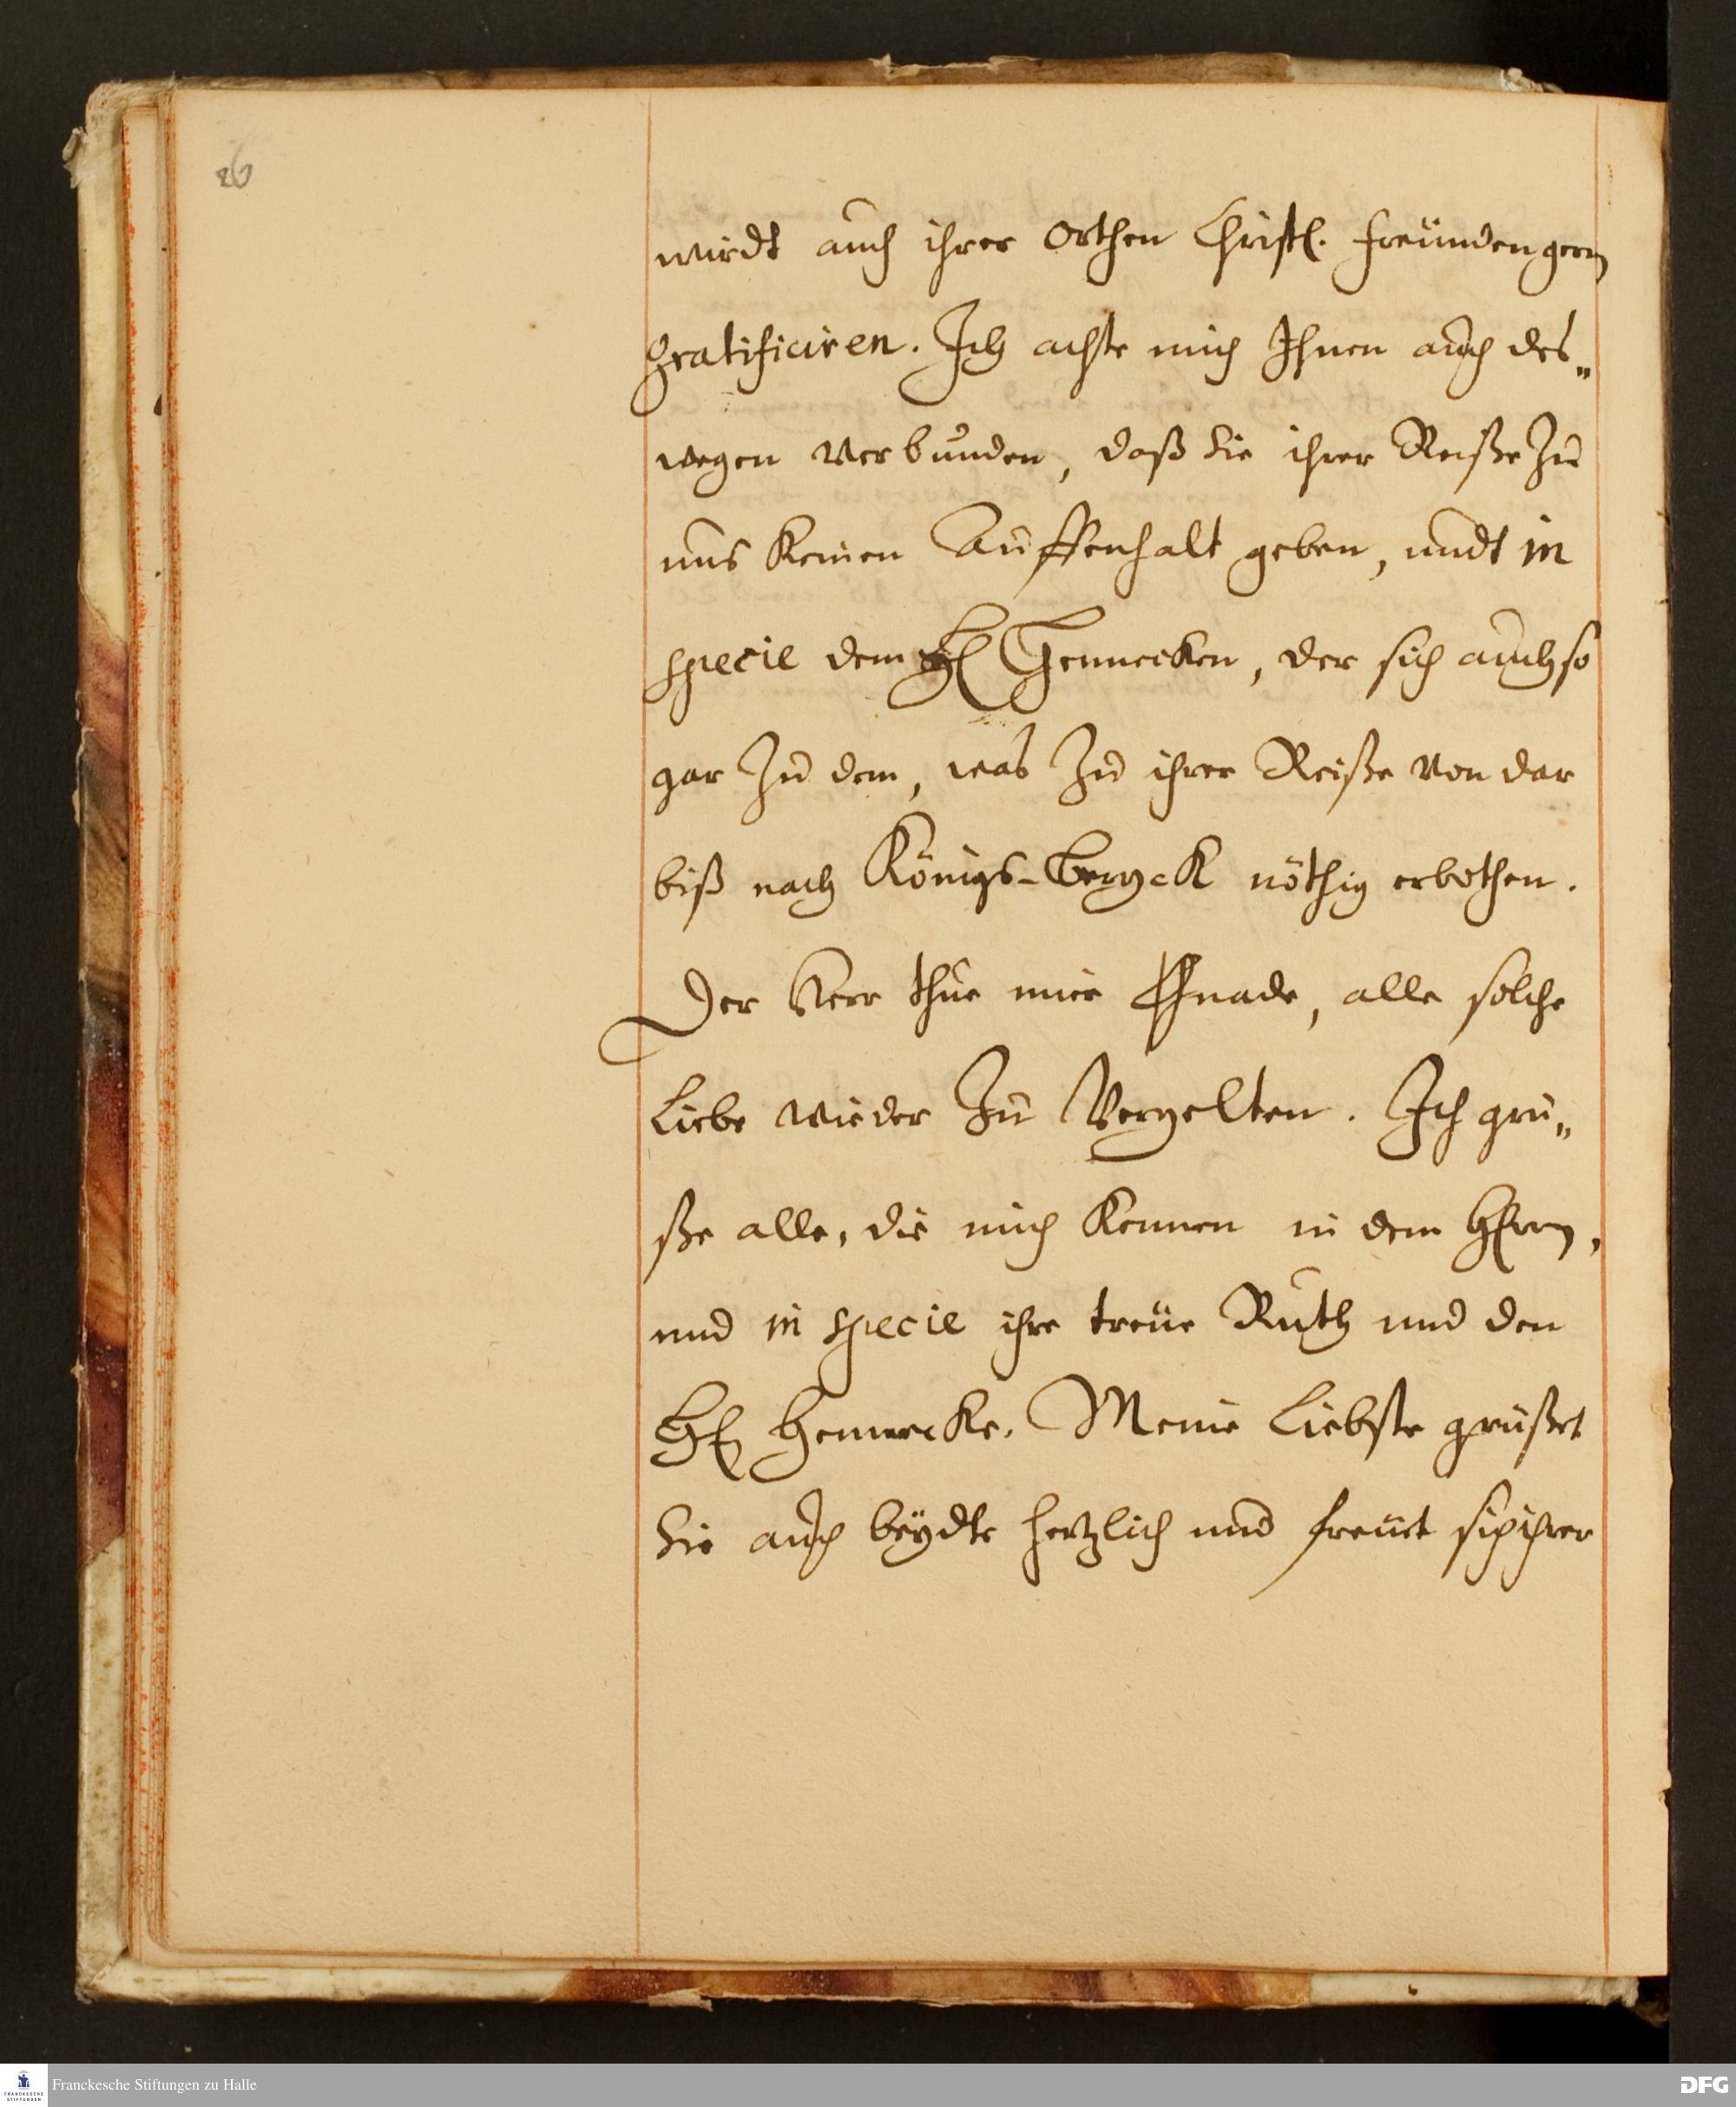 26
wirdt auch ihrer Orthen Christl. Freünden gern
gratificiren. Ich achte mich Ihnen auch des„
wegen verbunden, daß Sie ihrer Reiße zu
uns keinen Auffenhalt geben, undt in
specie dem H Hennecken, der sich auch so
gar zu dem, was zu ihrer Reiße von dar
biß nach Königs-Bergck nöthig erbothen.
Der Herr thue mir Gnade, alle solche
Liebe wieder zu Vergelten. Ich grü„
ße alle, die mich kennen in dem HErrn,
und in specie ihre treüe Ruth und den
H Hennecke. Meine Liebste grüßet
Sie auch beÿdte hertzlich und freüet sich ihrer
Franckesche Stiftungen zu Halle
FRANCKESCHE
STIFTUNGEN
DFG